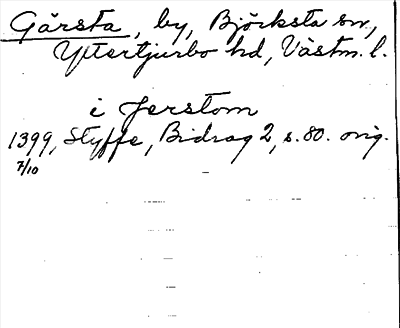 Gärsta, by, Björksta sn,
Yttertjurbo hd, Västm. l.
i Jerstom
1399, Styffe, Bidrag 2, s. 80. orig.
7/10